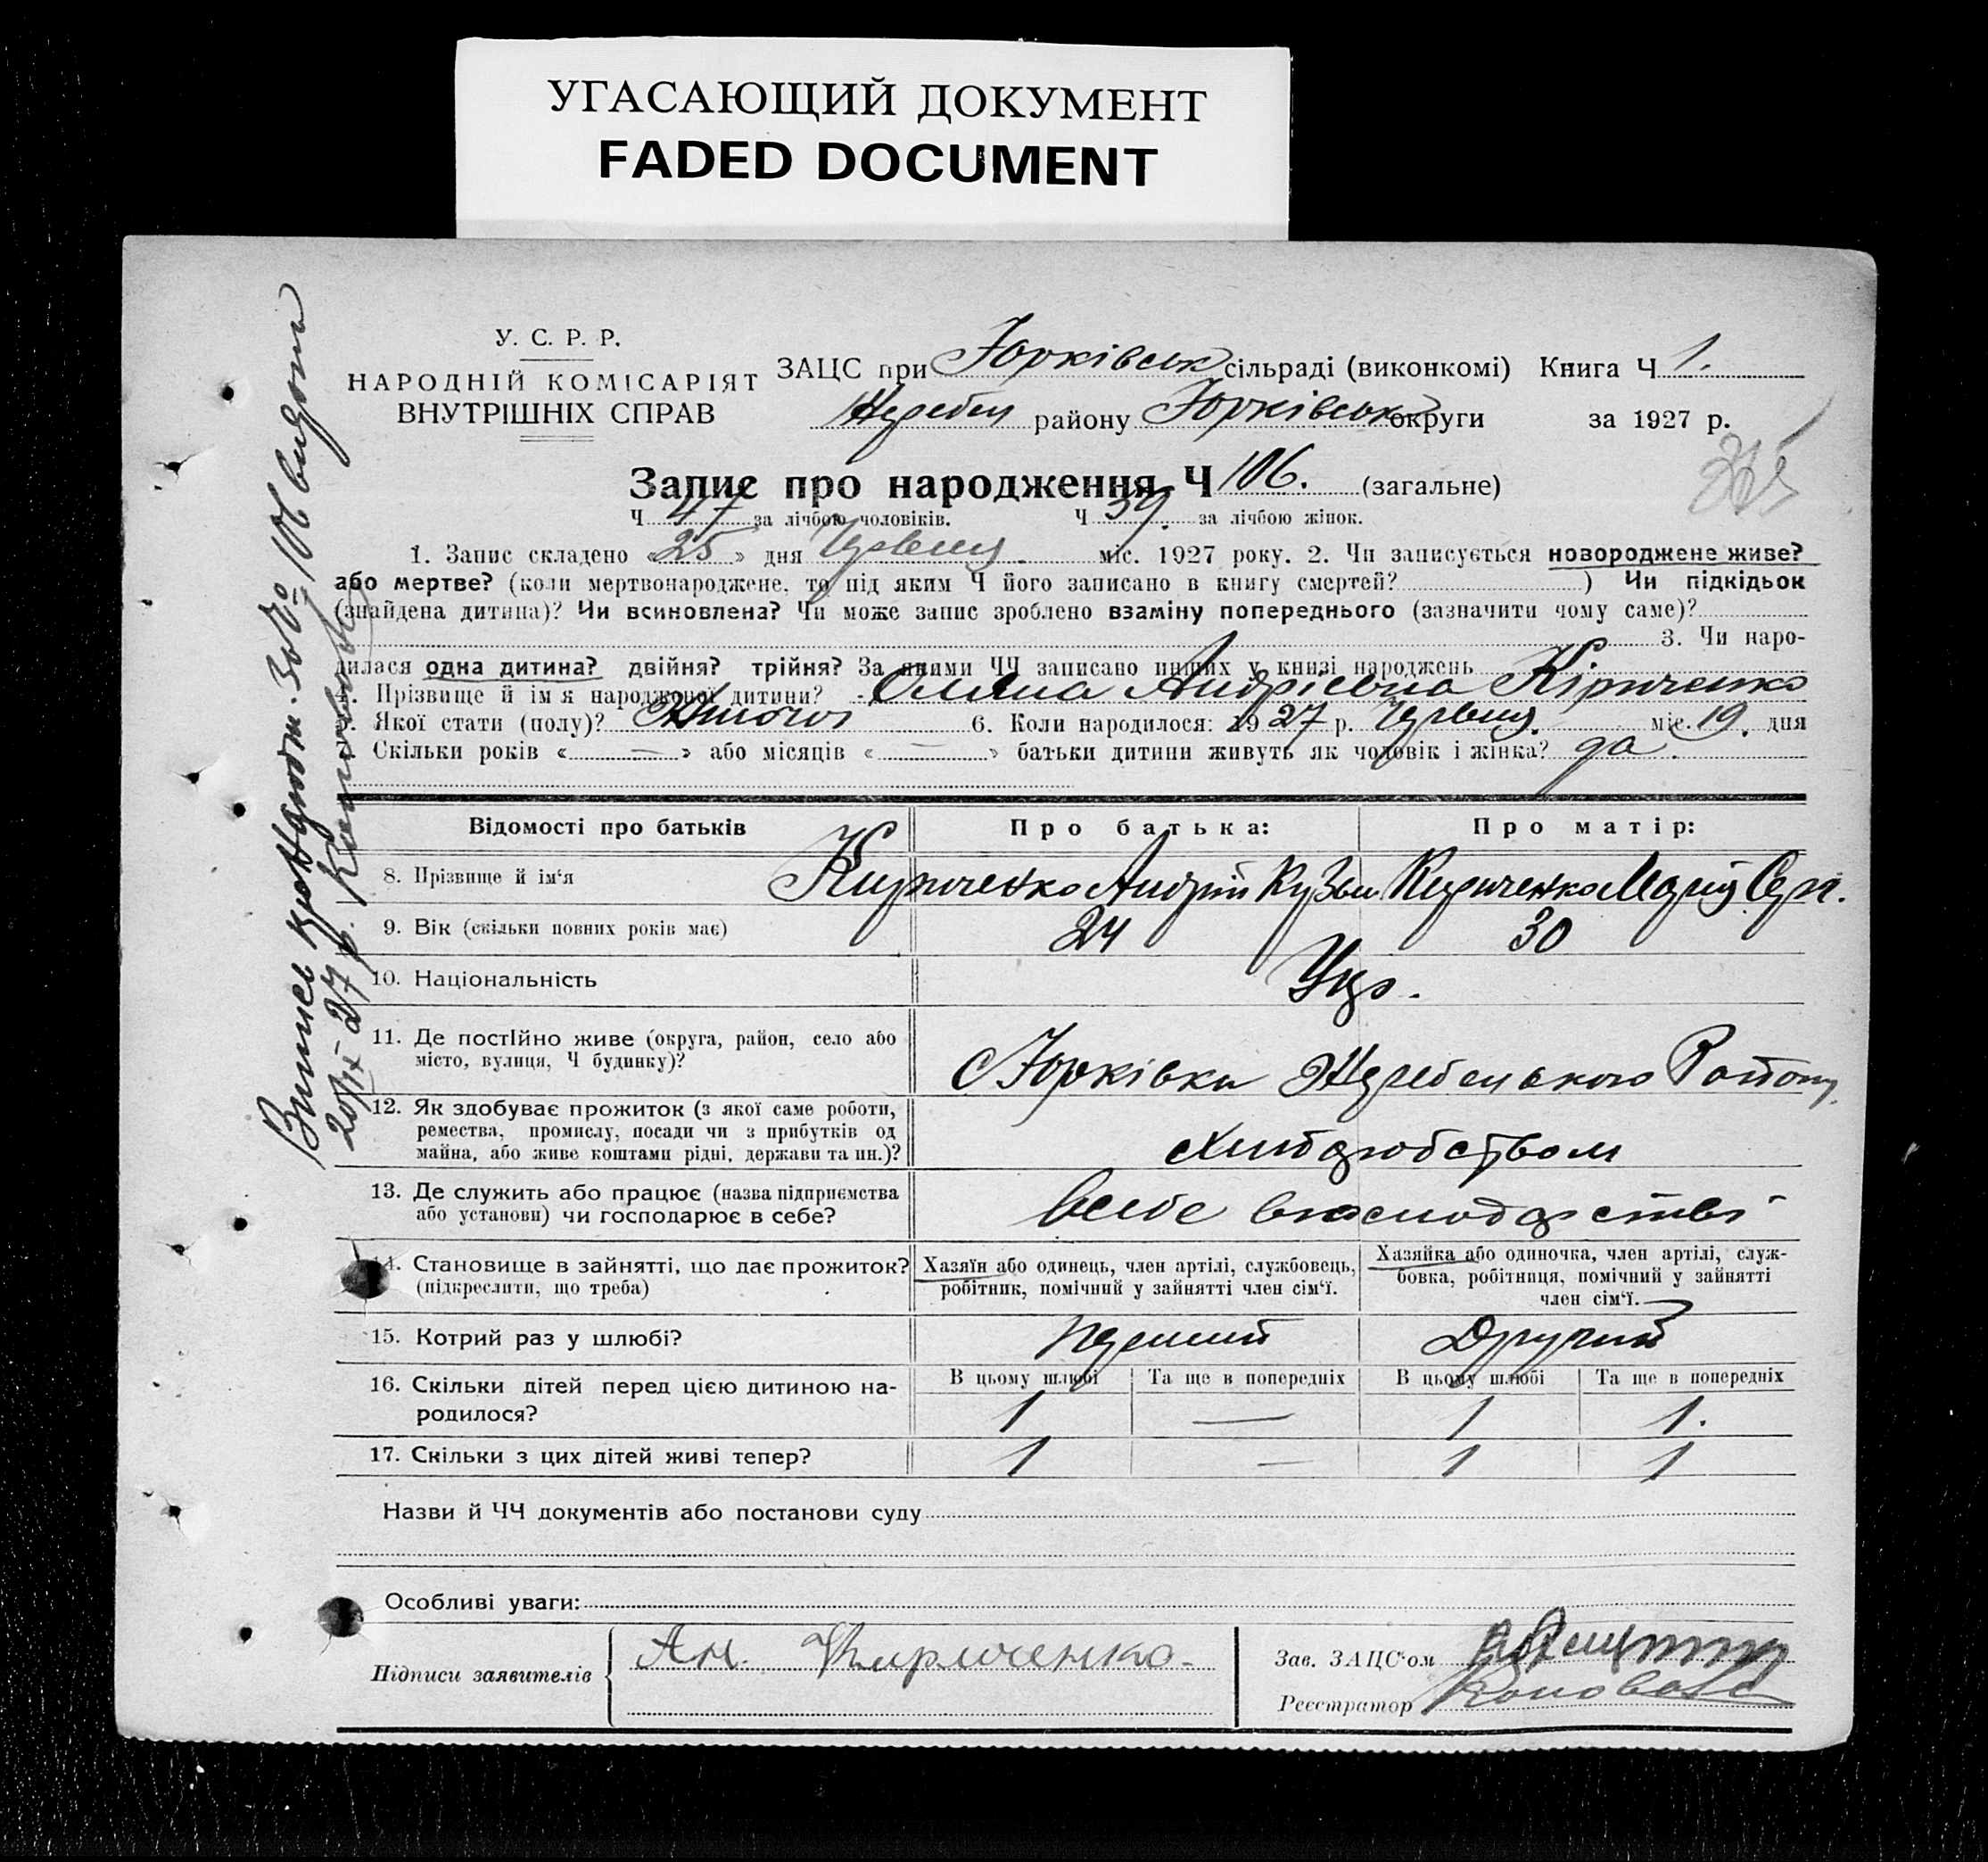 УГАСАЮЩИЙ ДОКУМЕНТ
FADED DOCUMENT
У. С. Р. Р.
НАРОДНІЙ КОМІСАРІЯТ
ВНУТРІШНІХ СПРАВ
ЗАЦС при Юрківськ сільраді (виконкомі) Книга Ч 1.
району Юрківськ округи за 1927 р.
Запис про народження Ч 106. (загальне)
Ч 47 за лічбою чоловіків. Ч 59. за лічбою жінок.
1. Запис складено «25» дня Червня. міс. 1927 року. 2. Чи записується новороджене живе?
або мертве? (коли мертвонароджене, то під яким Ч його записано в книгу смертей? ) Чи підкідьок
(знайдена дитина)? Чи всиновлена? Чи може запис зроблено взаміну попереднього (зазначити чому саме)?
3. Чи наро-
дилася одна дитина? двійня? трійня? За якими ЧЧ записано инших у книзі народжень
4. Прізвище й ім'я народженої дитини? Андрієвна Кіриченко
5. Якої стати (полу)? Жіночої 6. Коли народилося: 1927 р. Червня. міс. 19. дня
Скільки років « — » або місяців « — » батьки дитини живуть як чоловік і жінка? да.
Відомості про батьків Про батька: Про матір:
8. Прізвище й ім'я Кириченко Андрій Кузьм Кириченко Марія
9. Вік (скільки повних років має) 24 30
10. Національність Укр.
11. Де постійно живе (округа, район, село або
місто, вулиця, Ч будинку)?
С Юрківка Району
12. Як здобуває прожиток (з якої саме роботи,
ремества, промислу, посади чи з прибутків од
майна, або живе коштами рідні, держави та ин.)?
13. Де служить або працює (назва підприємства
або установи) чи господарює в себе?
всебе вгосподарстві
14. Становище в зайнятті, що дає прожиток?
(підкреслити, що треба)
Хазяїн або одинець, член артілі, службовець,
робітник, помічний у зайнятті член сім'ї.
Хазяйка або одиночка, член артілі, служ-
бовка, робітниця, помічний у зайнятті
член сім'ї.
15. Котрий раз у шлюбі? перший Другий
16. Скільки дітей перед цією дитиною на-
родилося?
В цьому шлюбі Та ще в попередніх В цьому шлюбі Та ще в попередніх
1 — 1 1.
17. Скільки з цих дітей живі тепер? 1 — 1 1
Назви й ЧЧ документів або постанови суду
Особливі уваги:
Підписи заявителів Ан. Кириченко
Зав. ЗАЦС'ом
Реєстратор